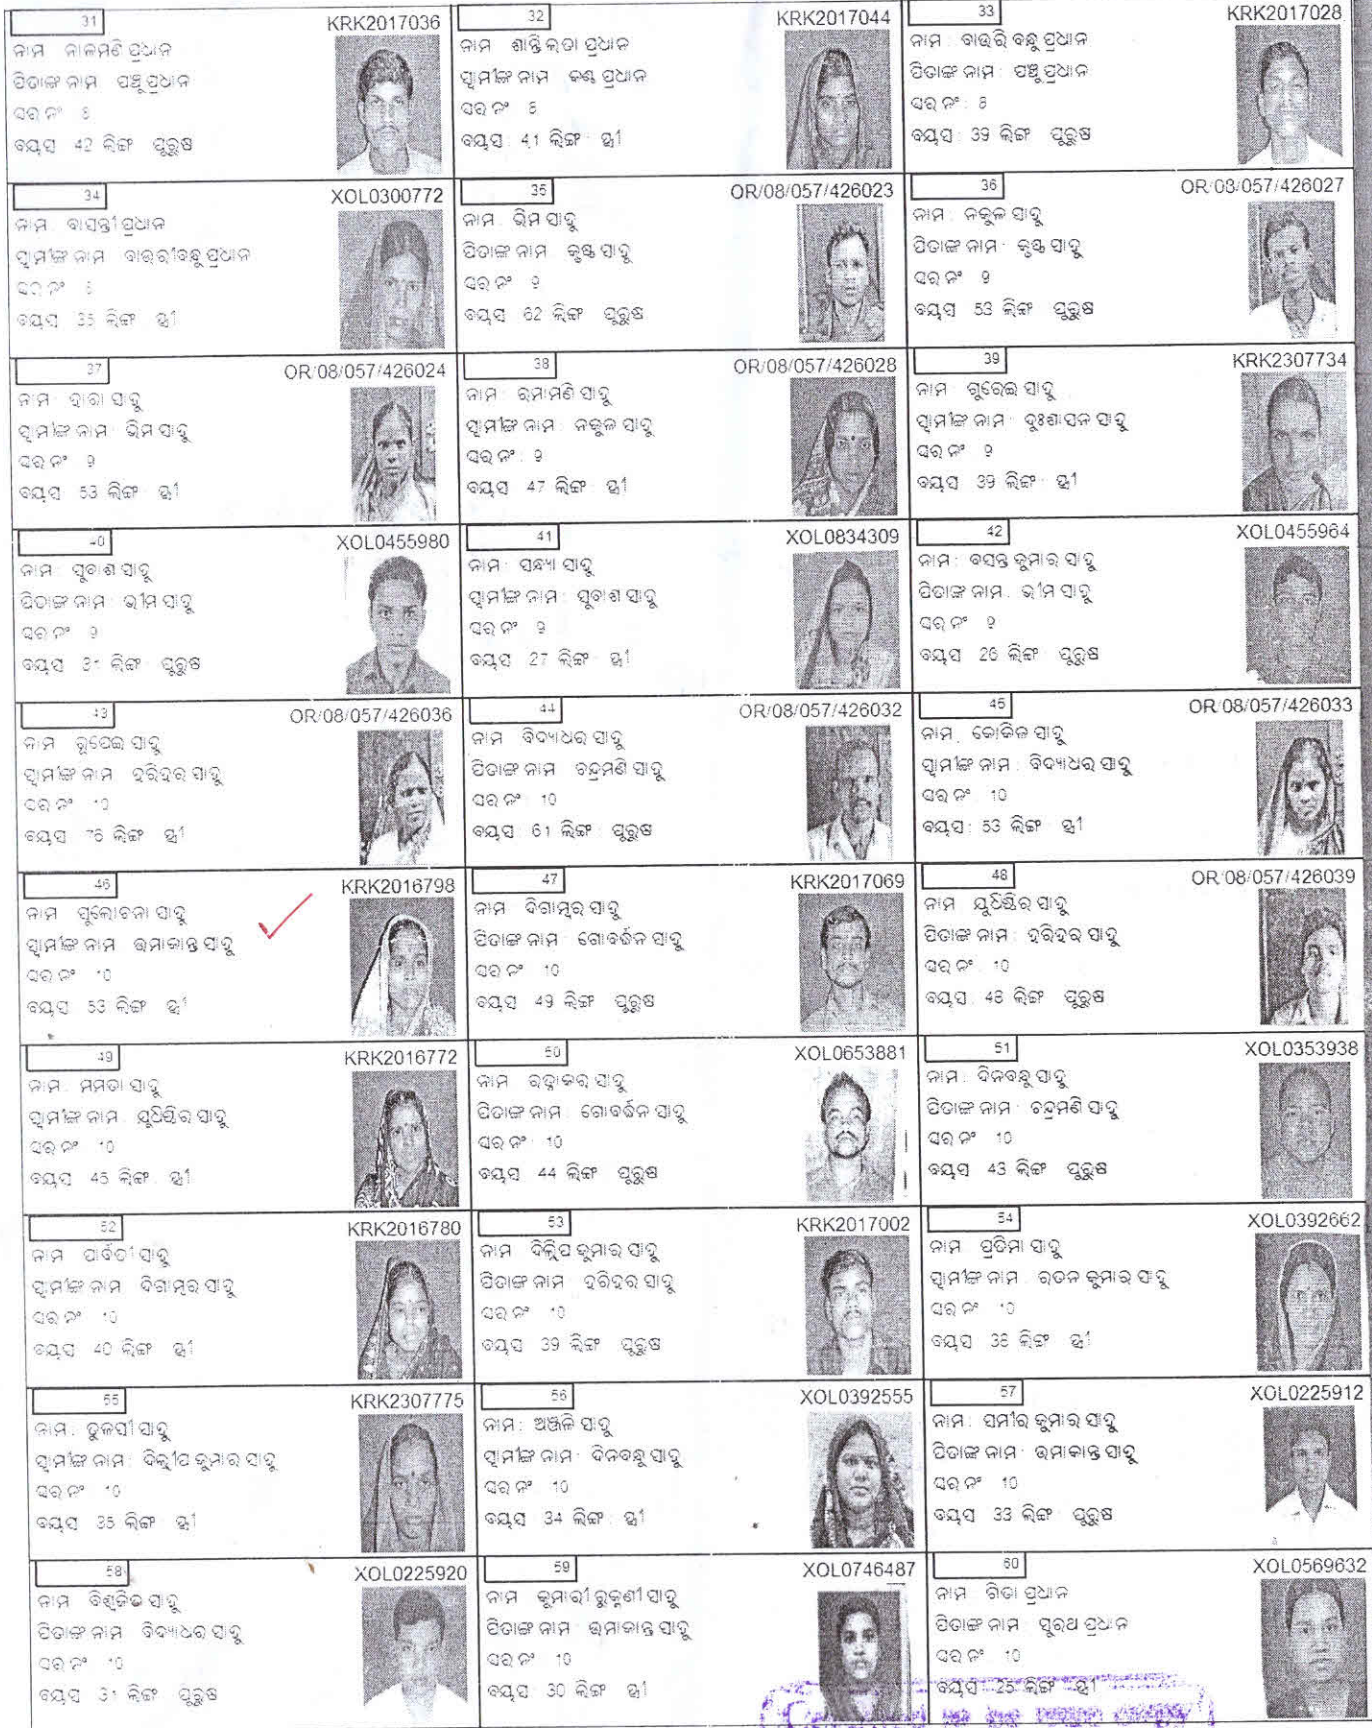 31 KRK2017036
ନାମ ନୀଳମଣି ପ୍ରଧାନ
ପିତାଙ୍କ ନାମ ପଞ୍ଚୁ ପ୍ରଧାନ
ଘର ନଂ 8
ବୟସ 42 ଲିଙ୍ଗ ପୁରୁଷ
32 KRK2017044
ନାମ ଶାନ୍ତି ଲତା ପ୍ରଧାନ
ସ୍ୱାମୀଙ୍କ ନାମ କଣ୍ଢ ପ୍ରଧାନ
ଘର ନଂ 8
ବୟସ 41 ଲିଙ୍ଗ ସ୍ତ୍ରୀ
33 KRK2017028
ନାମ ବାଉରି ବନ୍ଧୁ ପ୍ରଧାନ
ପିତାଙ୍କ ନାମ ପଞ୍ଚୁ ପ୍ରଧାନ
ଘର ନଂ : 8
ବୟସ : 39 ଲିଙ୍ଗ ପୁରୁଷ
34 XOL0300772
ନାମ ବାସନ୍ତୀ ପ୍ରଧାନ
ସ୍ୱାମୀଙ୍କ ନାମ ବାଉରୀବନ୍ଧୁ ପ୍ରଧାନ
ଘର ନଂ 8
ବୟସ 35 ଲିଙ୍ଗ ସ୍ତ୍ରୀ
35 OR/08/057/426023
ନାମ : ଭିମ ସାହୁ
ପିତାଙ୍କ ନାମ କୃଷ୍ଣ ସାହୁ
ଘର ନଂ 9
ବୟସ 62 ଲିଙ୍ଗ ପୁରୁଷ
36 OR/08/057/426027
ନାମ : ନକୁଳ ସାହୁ
ପିତାଙ୍କ ନାମ : କୃଷ୍ଣ ସାହୁ
ଘର ନଂ 9
ବୟସ 53 ଲିଙ୍ଗ ପୁରୁଷ
37 OR/08/057/426024
ନାମ : ହାରା ସାହୁ
ସ୍ୱାମୀଙ୍କ ନାମ : ଭିମ ସାହୁ
ଘର ନଂ 9
ବୟସ 53 ଲିଙ୍ଗ ସ୍ତ୍ରୀ
38 OR/08/057/426028
ନାମ : ରମାମଣି ସାହୁ
ସ୍ୱାମୀଙ୍କ ନାମ : ନକୁଳ ସାହୁ
ଘର ନଂ : 9
ବୟସ 47 ଲିଙ୍ଗ ସ୍ତ୍ରୀ
39 KRK2307734
ନାମ : ଗୁରେଇ ସାହୁ
ସ୍ୱାମୀଙ୍କ ନାମ : ଦୁଃଶାସନ ସାହୁ
ଘର ନଂ 9
ବୟସ 39 ଲିଙ୍ଗ ସ୍ତ୍ରୀ
40 XOL0455980
ନାମ : ସୁବାଶ ସାହୁ
ପିତାଙ୍କ ନାମ : ଭୀମ ସାହୁ
ଘର ନଂ 9
ବୟସ 31 ଲିଙ୍ଗ ପୁରୁଷ
41 XOL0834309
ନାମ : ସନ୍ଧ୍ୟା ସାହୁ
ସ୍ୱାମୀଙ୍କ ନାମ : ସୁବାଶ ସାହୁ
ଘର ନଂ 9
ବୟସ 27 ଲିଙ୍ଗ ସ୍ତ୍ରୀ
42 XOL0455964
ନାମ : ବସନ୍ତ କୁମାର ସାହୁ
ପିତାଙ୍କ ନାମ : ଭୀମ ସାହୁ
ଘର ନଂ 9
ବୟସ 26 ଲିଙ୍ଗ ପୁରୁଷ
43 OR/08/057/426036
ନାମ ରୂପେଇ ସାହୁ
ସ୍ୱାମୀଙ୍କ ନାମ ହରିହର ସାହୁ
ଘର ନଂ 10
ବୟସ 76 ଲିଙ୍ଗ ସ୍ତ୍ରୀ
44 OR/08/057/426032
ନାମ ବିଦ୍ୟାଧର ସାହୁ
ପିତାଙ୍କ ନାମ ଚନ୍ଦ୍ରମଣି ସାହୁ
ଘର ନଂ 10
ବୟସ : 61 ଲିଙ୍ଗ ପୁରୁଷ
45 OR/08/057/426033
ନାମ : କୋକିଳ ସାହୁ
ସ୍ୱାମୀଙ୍କ ନାମ : ବିଦ୍ୟାଧର ସାହୁ
ଘର ନଂ 10
ବୟସ : 53 ଲିଙ୍ଗ ସ୍ତ୍ରୀ
46 KRK2016798
ନାମ ସୁଲୋଚନା ସାହୁ
ସ୍ୱାମୀଙ୍କ ନାମ ଉମାକାନ୍ତ ସାହୁ
ଘର ନଂ 10
ବୟସ 53 ଲିଙ୍ଗ ସ୍ତ୍ରୀ
47 KRK2017069
ନାମ ଦିଗାମ୍ବର ସାହୁ
ପିତାଙ୍କ ନାମ : ଗୋବର୍ଦ୍ଧନ ସାହୁ
ଘର ନଂ 10
ବୟସ 49 ଲିଙ୍ଗ ପୁରୁଷ
48 OR/08/057/426039
ନାମ ଯୁଧିଷ୍ଠିର ସାହୁ
ପିତାଙ୍କ ନାମ : ହରିହର ସାହୁ
ଘର ନଂ : 10
ବୟସ 48 ଲିଙ୍ଗ ପୁରୁଷ
49 KRK2016772
ନାମ : ମମତା ସାହୁ
ସ୍ୱାମୀଙ୍କ ନାମ ଯୁଧିଷ୍ଠିର ସାହୁ
ଘର ନଂ 10
ବୟସ 45 ଲିଙ୍ଗ ସ୍ତ୍ରୀ
50 XOL0653881
ନାମ ରତ୍ନାକର ସାହୁ
ପିତାଙ୍କ ନାମ : ଗୋବର୍ଦ୍ଧନ ସାହୁ
ଘର ନଂ 10
ବୟସ 44 ଲିଙ୍ଗ ପୁରୁଷ
51 XOL0353938
ନାମ : ଦିନବନ୍ଧୁ ସାହୁ
ପିତାଙ୍କ ନାମ : ଚନ୍ଦ୍ରମଣି ସାହୁ
ଘର ନଂ 10
ବୟସ 43 ଲିଙ୍ଗ ପୁରୁଷ
52 KRK2016780
ନାମ ପାର୍ବତୀ ସାହୁ
ସ୍ୱାମୀଙ୍କ ନାମ ଦିଗାମ୍ବର ସାହୁ
ଘର ନଂ 10
ବୟସ 40 ଲିଙ୍ଗ ସ୍ତ୍ରୀ
53 KRK2017002
ନାମ ଦିଲ୍ଲିପ କୁମାର ସାହୁ
ପିତାଙ୍କ ନାମ ହରିହର ସାହୁ
ଘର ନଂ 10
ବୟସ 39 ଲିଙ୍ଗ ପୁରୁଷ
54 XOL0392662
ନାମ ପ୍ରତିମା ସାହୁ
ସ୍ୱାମୀଙ୍କ ନାମ : ରତନ କୁମାର ସାହୁ
ଘର ନଂ 10
ବୟସ 36 ଲିଙ୍ଗ ସ୍ତ୍ରୀ
55 KRK2307775
ନାମ : ତୁଳସୀ ସାହୁ
ସ୍ୱାମୀଙ୍କ ନାମ : ଦିଲ୍ଲୀପ କୁମାର ସାହୁ
ଘର ନଂ 10
ବୟସ 35 ଲିଙ୍ଗ ସ୍ତ୍ରୀ
56 XOL0392555
ନାମ : ଅଞ୍ଜଳି ସାହୁ
ସ୍ୱାମୀଙ୍କ ନାମ : ଦିନବନ୍ଧୁ ସାହୁ
ଘର ନଂ 10
ବୟସ 34 ଲିଙ୍ଗ : ସ୍ତ୍ରୀ
57 XOL0225912
ନାମ : ସମୀର କୁମାର ସାହୁ
ପିତାଙ୍କ ନାମ : ଉମାକାନ୍ତ ସାହୁ
ଘର ନଂ 10
ବୟସ 33 ଲିଙ୍ଗ ପୁରୁଷ
58 XOL0225920
ନାମ ବିଶ୍ୱଜିତ ସାହୁ
ପିତାଙ୍କ ନାମ ବିଦ୍ୟାଧର ସାହୁ
ଘର ନଂ 10
ବୟସ 31 ଲିଙ୍ଗ ପୁରୁଷ
59 XOL0746487
ନାମ କୁମାରୀ ରୁକୁଣୀ ସାହୁ
ପିତାଙ୍କ ନାମ : ଉମାକାନ୍ତ ସାହୁ
ଘର ନଂ 10
ବୟସ 30 ଲିଙ୍ଗ ସ୍ତ୍ରୀ
60 XOL0569632
ନାମ : ଗିତା ପ୍ରଧାନ
ପିତାଙ୍କ ନାମ : ସୁରଥ ପ୍ରଧାନ
ଘର ନଂ 10
ବୟସ 25 ଲିଙ୍ଗ ସ୍ତ୍ରୀ